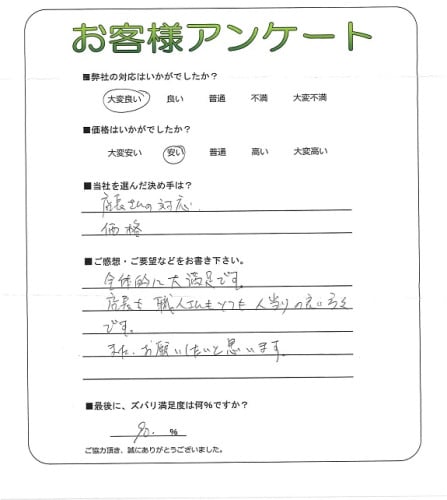 お客様アンケート
■弊社の対応はいかがでしたか？
大変良い 良い 普通 不満 大変不満
■価格はいかがでしたか？
大変安い 安い 普通 高い 大変高い
■当社を選んだ決め手は？
店長さんの対応.
価格
■ご感想・ご要望などをお書き下さい。
全体的に大満足です。
店長も職人さんもとても人当りの良い方
です。
また、お願いしたいと思います。
■最後に、ズバリ満足度は何%ですか？
%
ご協力頂き、誠にありがとうございました。